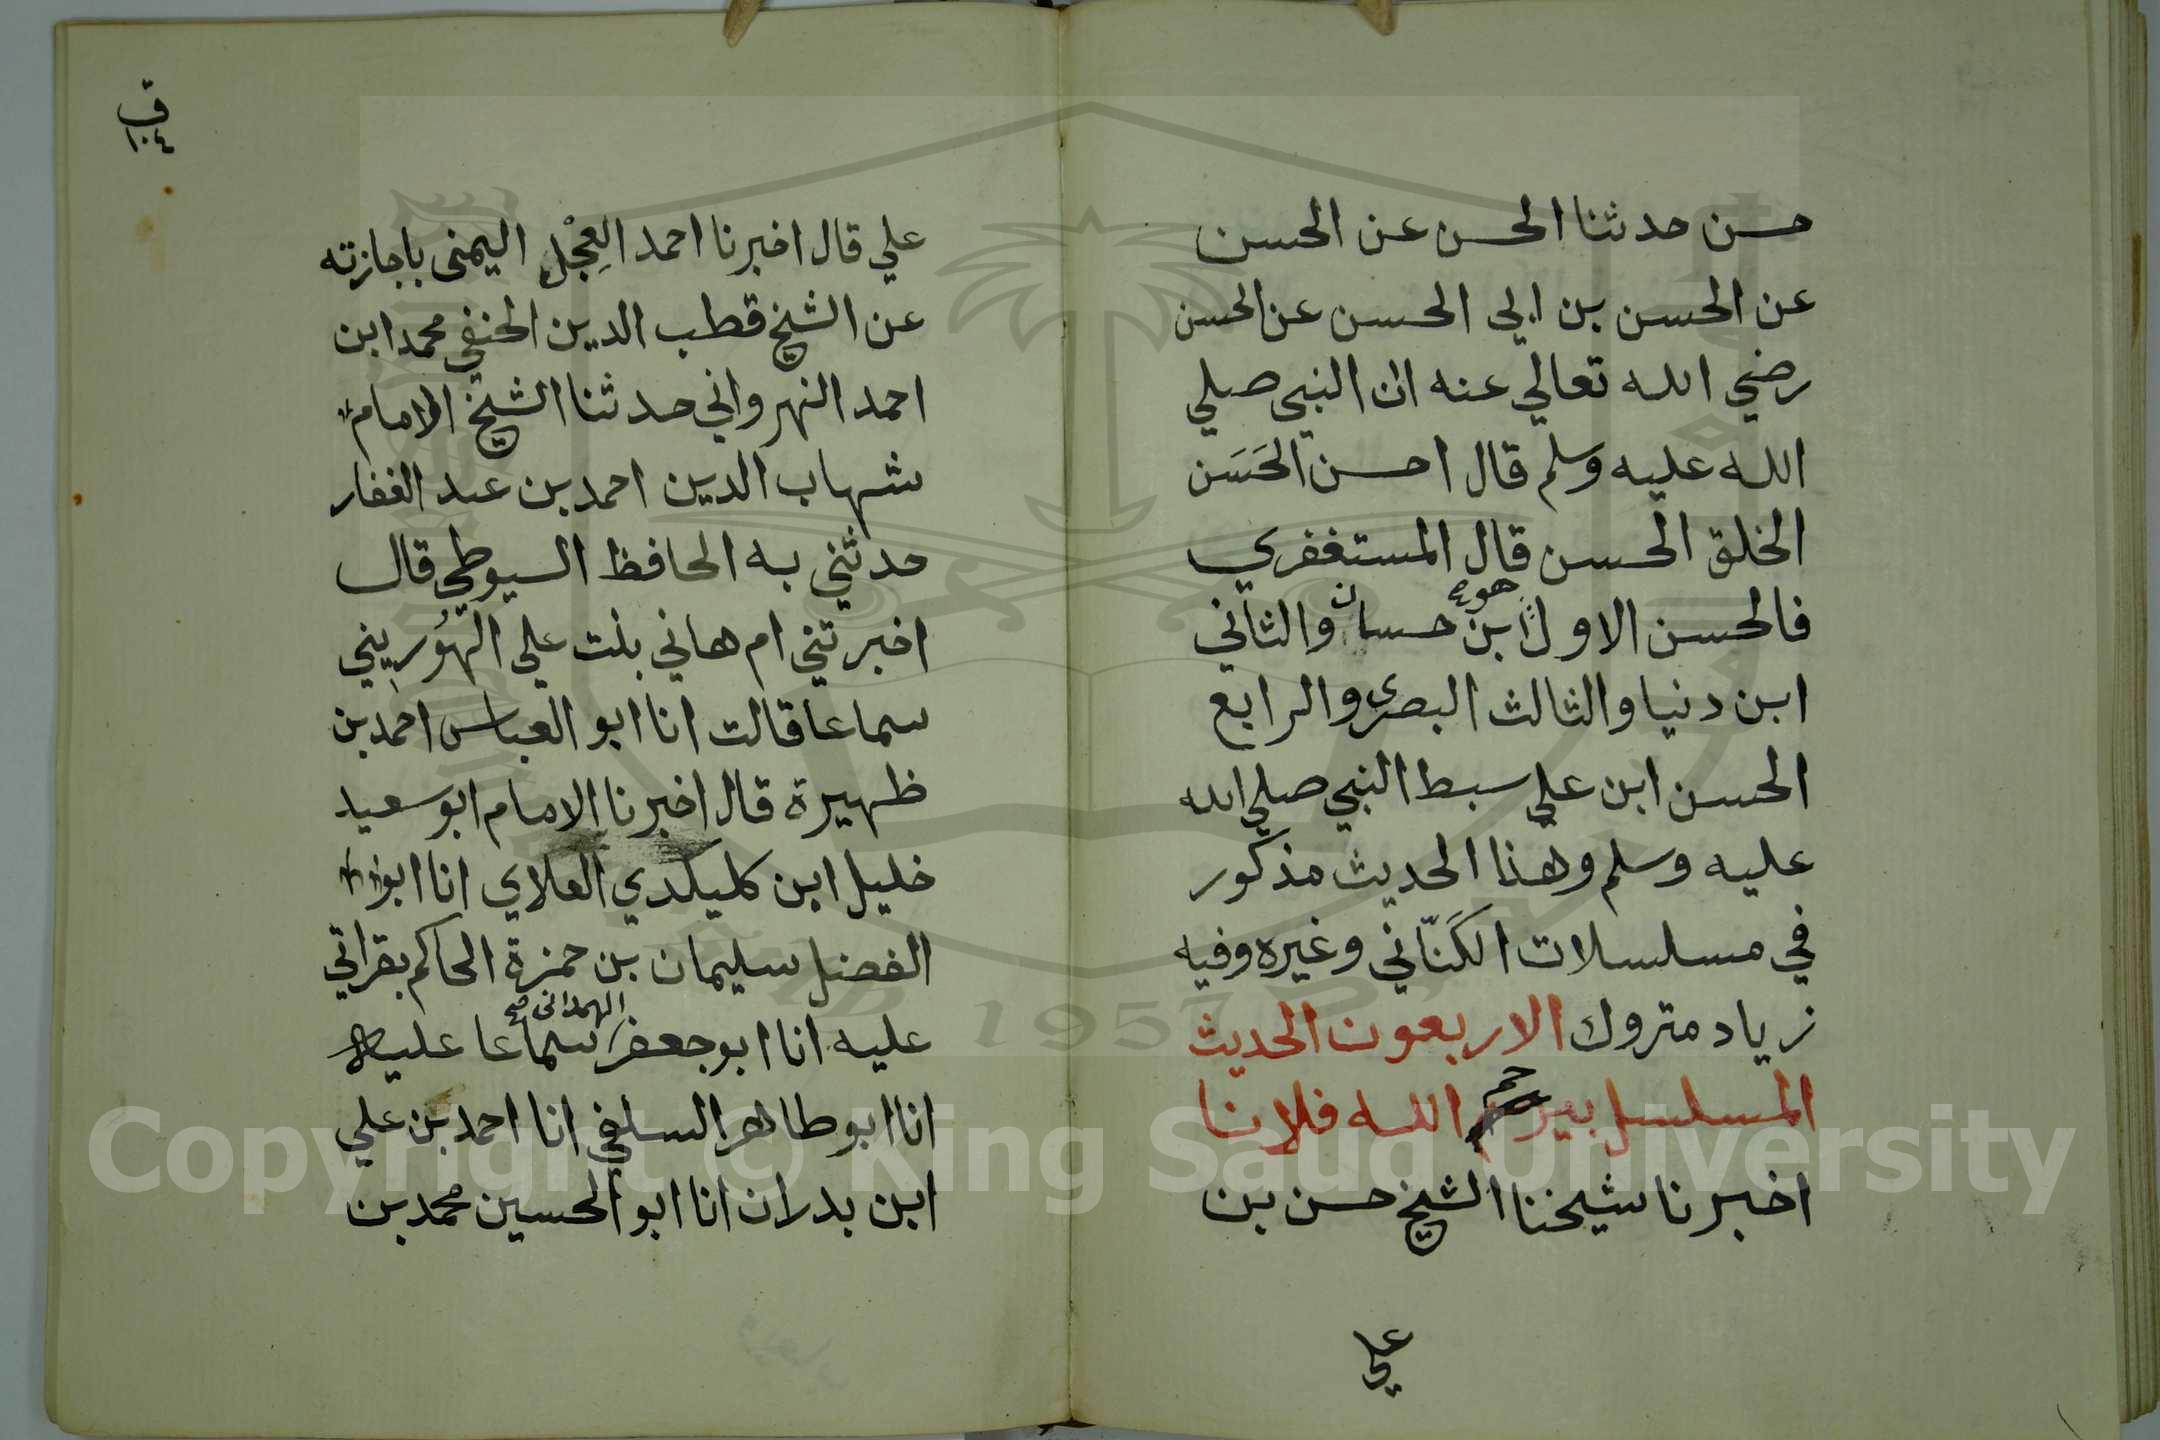 حسن حدثنا الحسن عن الحسن
عن الحسن بن ابي الحسن عن الحسن
رضي الله تعالي عنه ان النبي صلي
الله عليه وسلم قال احسن الحَسَن
الخلق الحسن قال المستغفري
هو
فالحسن الاول ابن حسان والثاني
ابن دنيا والثالث البصري والرابع
الحسن ابن علي سبط النبي صلي الله
عليه وسلم وهذا الحديث مذكور
في مسلسلات الكَنّاني وغيره وفيه
زياد متروك الاربعون الحديث
المسلسل بيرحم الله فلانا
اخبرنا شيخنا الشيخ حسن بن
علي
ق
١٠٤
علي قال اخبرنا احمد العِجْل اليمني باجازته
عن الشيخ قطب الدين الحنفي محمد ابن
احمد النهرواني حدثنا الشيخ الامام
شهاب الدين احمد بن عبد الغفار
حدثني به الحافظ السيوطي قال
اخبرتني ام هاني بنت علي الهُوريني
سماعا قالت انا ابو العباس احمد بن
ظهيرة قال اخبرنا الامام ابو سعيد
خليل ابن كليكدي العلاي انا ابو
الفضل سليمان بن حمزة الحاكم بقراتي
الهمداني صح
عليه انا ابو جعفر سماعا عليه
انا ابو طاهر السلفي انا احمد بن علي
ابن بدران انا ابو الحسين محمد بن
Copyright © King Saud University
1957